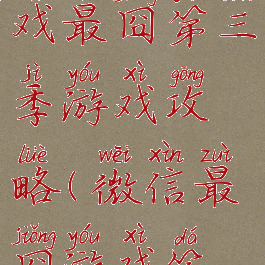 戏最囧第三
jì yóu xì gōng
季游戏攻
lüè wēi xìn zuì
略(微信最
jiǒng yóu xì dá
囧游戏答